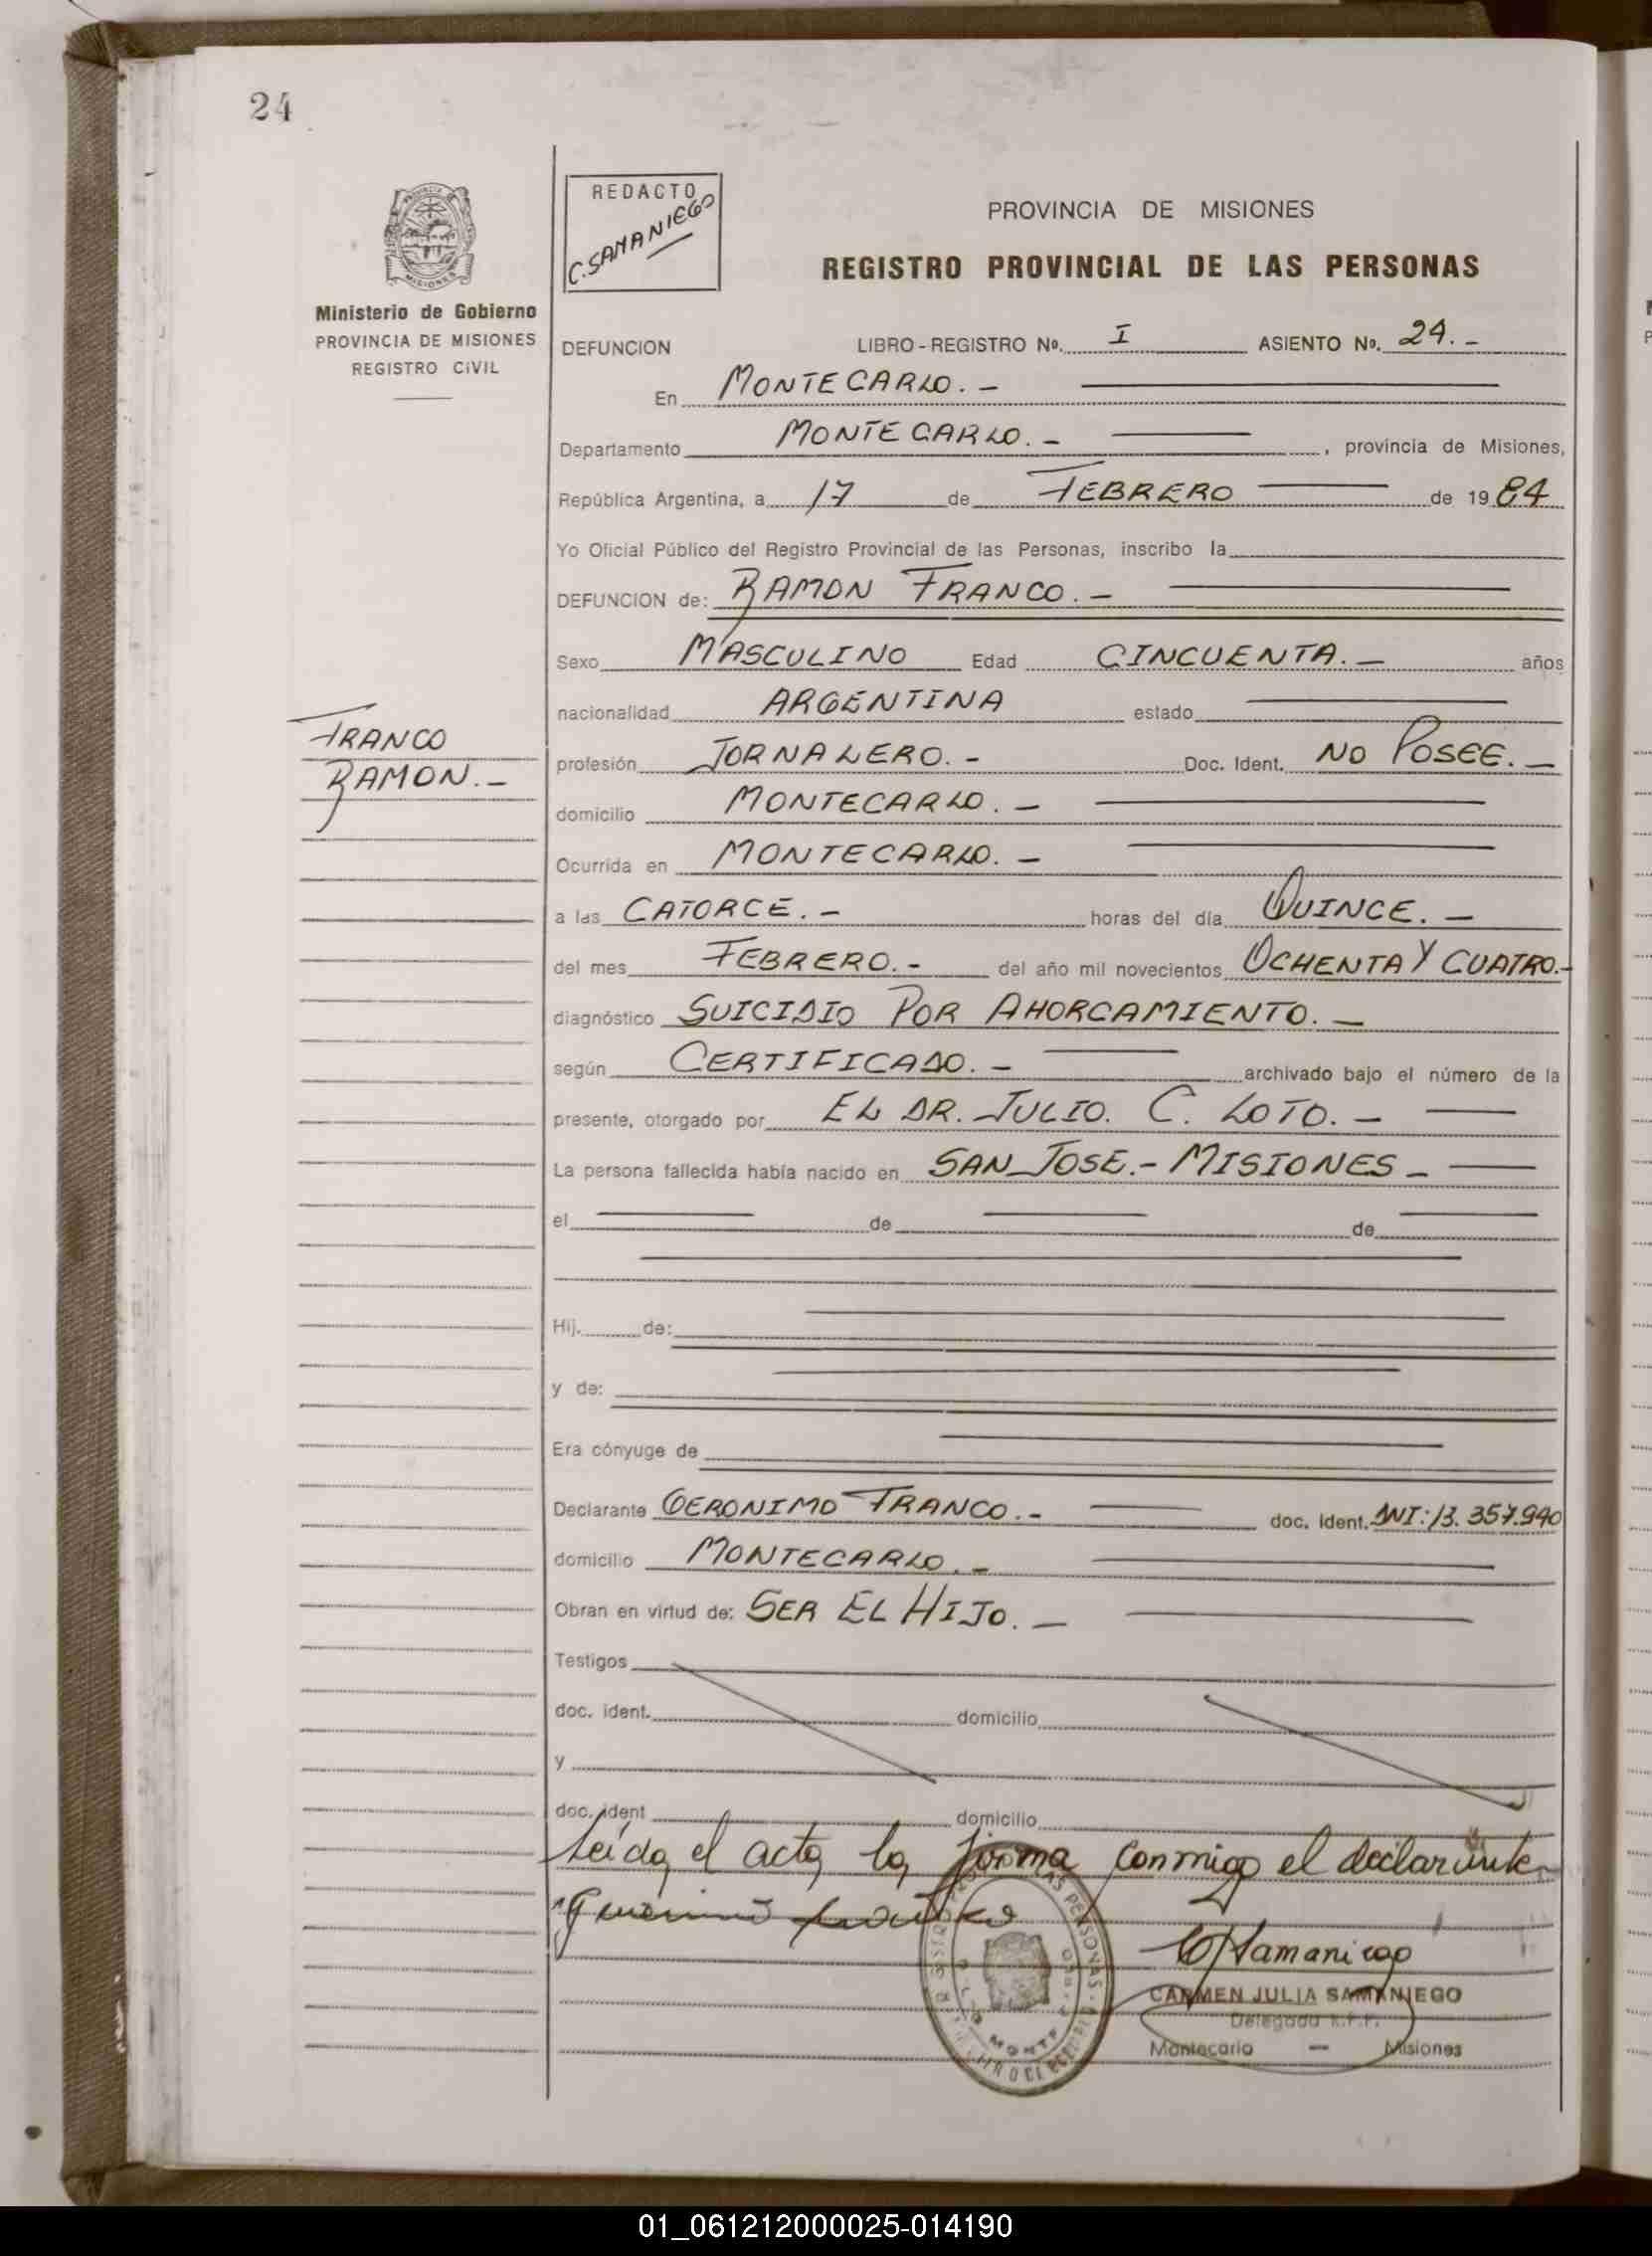 24
REDACTO
C. SAMANIEGO
PROVINCIA DE MISIONES
REGISTRO PROVINCIAL DE LAS PERSONAS
Ministerio de Gobierno
PROVINCIA DE MISIONES
REGISTRO CIVIL
DEFUNCION LIBRO-REGISTRO Nº. I ASIENTO Nº. 24.-
En MONTECARLO.-
Departamento MONTECARLO.- , provincia de Misiones,
República Argentina, a 17 de FEBRERO de 1984
Yo Oficial Público del Registro Provincial de las Personas, inscribo la
DEFUNCION de: RAMON FRANCO.-
Sexo MASCULINO Edad CINCUENTA.- años
nacionalidad ARGENTINA estado
FRANCO
RAMON.-
profesión JORNALERO.- Doc. Ident. NO POSEE.-
domicilio MONTECARLO.-
Ocurrida en MONTECARLO.-
a las CATORCE.- horas del día QUINCE.-
del mes FEBRERO.- del año mil novecientos OCHENTA Y CUATRO.-
diagnóstico SUICIDIO POR AHORCAMIENTO.-
según CERTIFICADO.- archivado bajo el número de la
presente, otorgado por EL DR. JULIO. C. LOTO.-
La persona fallecida había nacido en SAN JOSE.- MISIONES -
el de de
Hij. de:
y de:
Era cónyuge de
Declarante GERONIMO FRANCO.- doc. Ident. DNI: 13.357.940
domicilio MONTECARLO.-
Obran en virtud de: SER EL HIJO.-
Testigos
doc. ident. domicilio
y
doc. ident domicilio
Leída el acta la firma conmigo el declarante
CSamaniego
CARMEN JULIA SAMANIEGO
Delegada R.P.P.
Montecarlo - Misiones
01_061212000025-014190